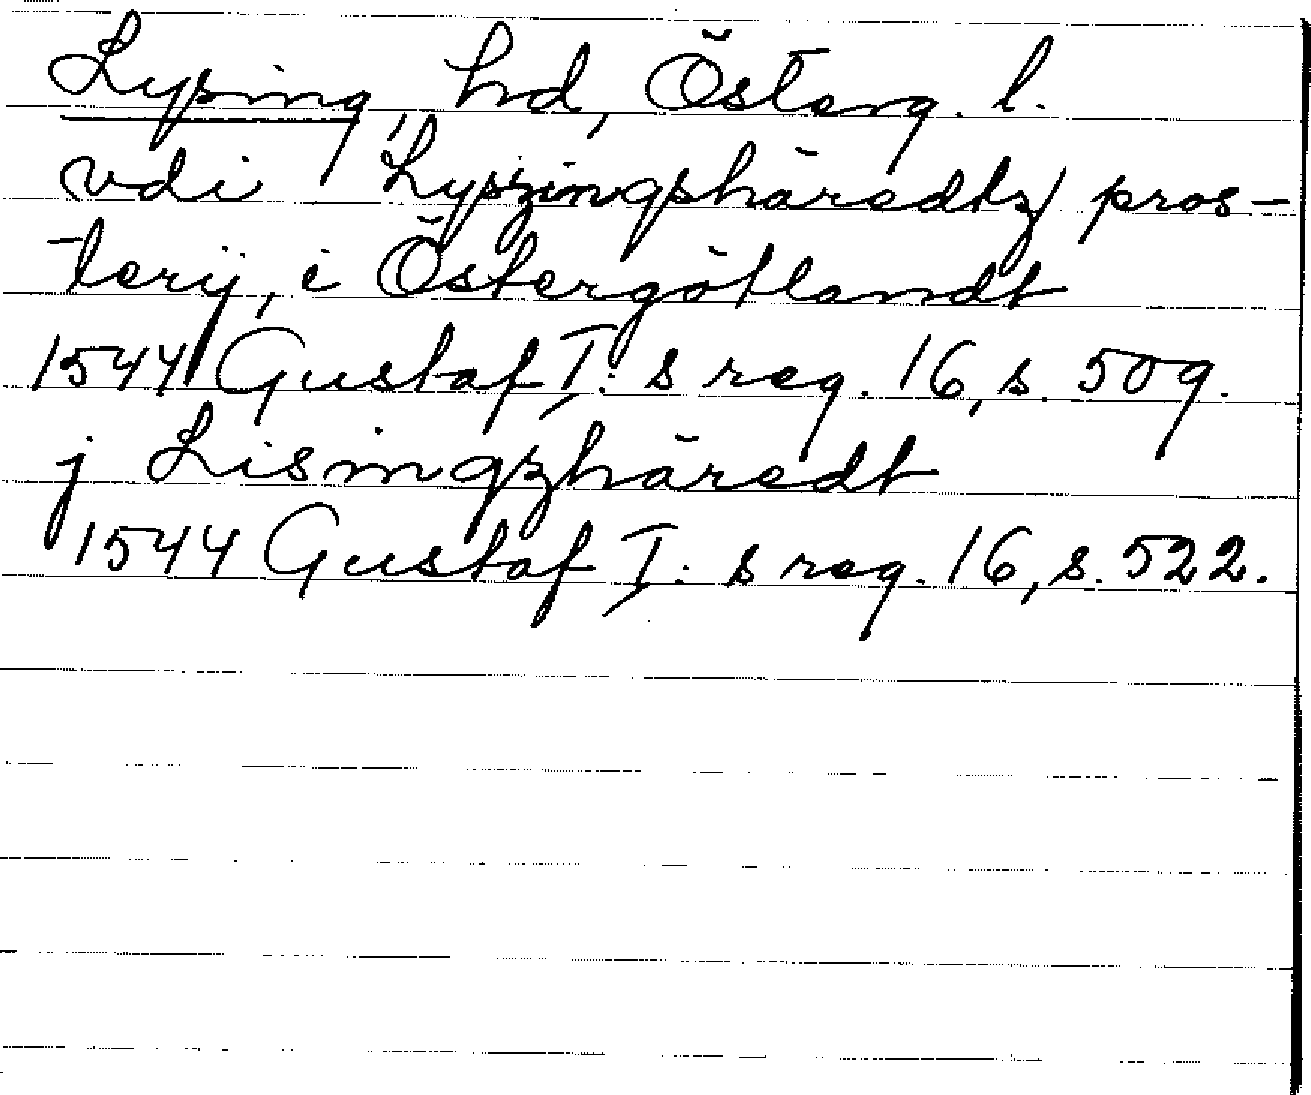 Lysing, hd, Österg. l.
vdi Lyszingshäredtz pros-
terij, i Östergötlandt
1544 Gustaf I: s reg. 16, s. 509.
j Lisingzhäredt
1544 Gustaf I: s reg. 16, s. 522.